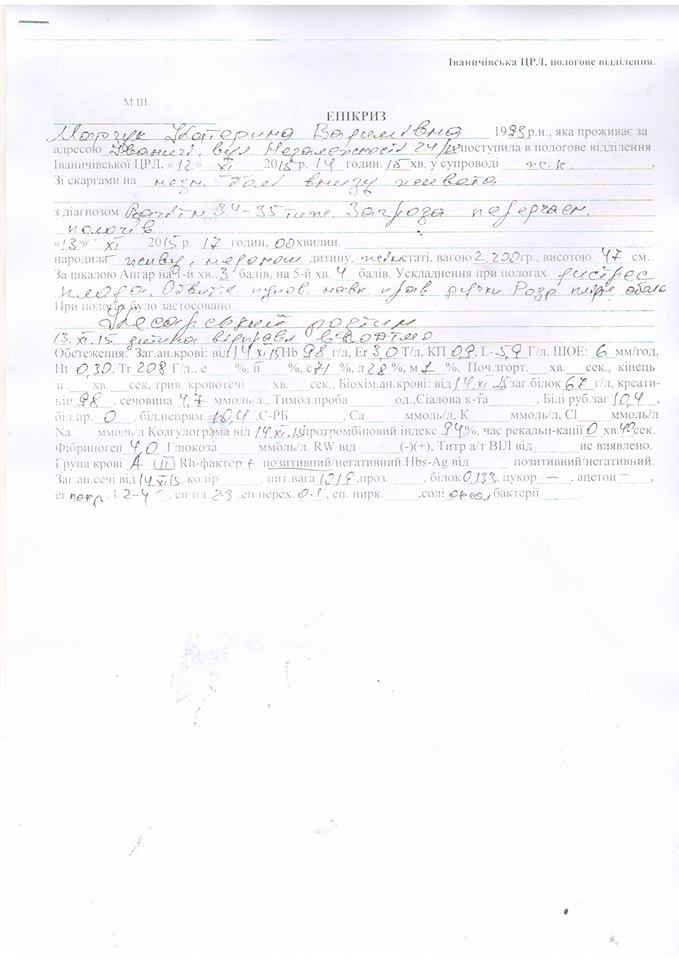 Іваничівська ЦРЛ, пологове відділення.
М.Ш.
ЕПІКРИЗ
Катерина Вадимівна 1993 р.н., яка проживає за
адресою Іваничі, вул Незалежності 24/ поступила в пологове відділення
Іваничівської ЦРЛ. «12» XI 2015 р. 14 годин. 15 хв. у супроводі
Зі скаргами на незн. болі внизу живота
з діагнозом Вагітн 34-35 тиж. Загроза передчасн.
пологів
«13» XI 2015 р. 17 годин, 00 хвилин.
народила живу, недонош дитину, статі, вагою 2.200 гр., висотою 47 см.
За шкалою Апгар на 1-й хв. 3 балів, на 5-й хв. 4 балів. Ускладнення при пологах дистрес
плода. Обвиття пупов. навк прав ручки
При пологах було застосовано
Кесарський розтин
13.XI.15 дитина відправл в
Обстеження: Заг.ан.крові: від 14.XI.15 Hb 98 г/л, Ег 3,0 Т/л, КП 0,9, L- 5,9 Г/л. ШОЕ: 6 мм/год,
Ht 0,30, Тг 208 Г/л., е %, п %, с 71 %, л 28 %, м 1 %. Поч.згорт. хв. сек., кінець
зг. хв. сек, трив. кровотечі хв. сек., Біохім.ан.крові: від 14.XI.15 заг.білок 67 г/л, креати-
нін 98, сечовина 4,7 ммоль/л.. Тимол.проба од.,Сіалова к-та , Білі руб.заг 10,4,
біл.пр. 0 біл.непрям. 10,4 ,С-РБ , Са ммоль/л, К ммоль/л, Cl ммоль/л
Na ммоль/л Коагулограма від 14.XI.15 протромбіновий індекс 94%, час рекальц-кації 0 хв.40 сек.
Фібриноген 4,0 .Глюкоза ммоль/л. RW від (-)(+), Титр а/т ВІЛ від не виявлено.
Група крові А (II) Rh-фактор + позитивний/негативний.Hbs-Ag від позитивний/негативний.
Заг.ан.сечі від 14.XI.15. колір , пит.вага 1019 ,проз. , білок 0,133, цукор — , ацетон — ,
L 2-4 , еп пл. 2-3 ,еп.перех. 0-1 , еп. нирк. ,солі оксал бактерії .